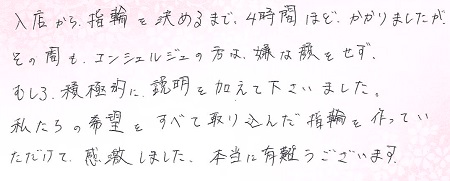 入店から、指輪を決めるまで、4時間ほど、かかりましたが、
その間も、コンシェルジュの方は、嫌な顔をせず、
むしろ、積極的に、説明を加えて下さいました。
私たちの希望をすべて取り込んだ指輪を作ってい
ただけて、感激しました。本当に有難うございます。